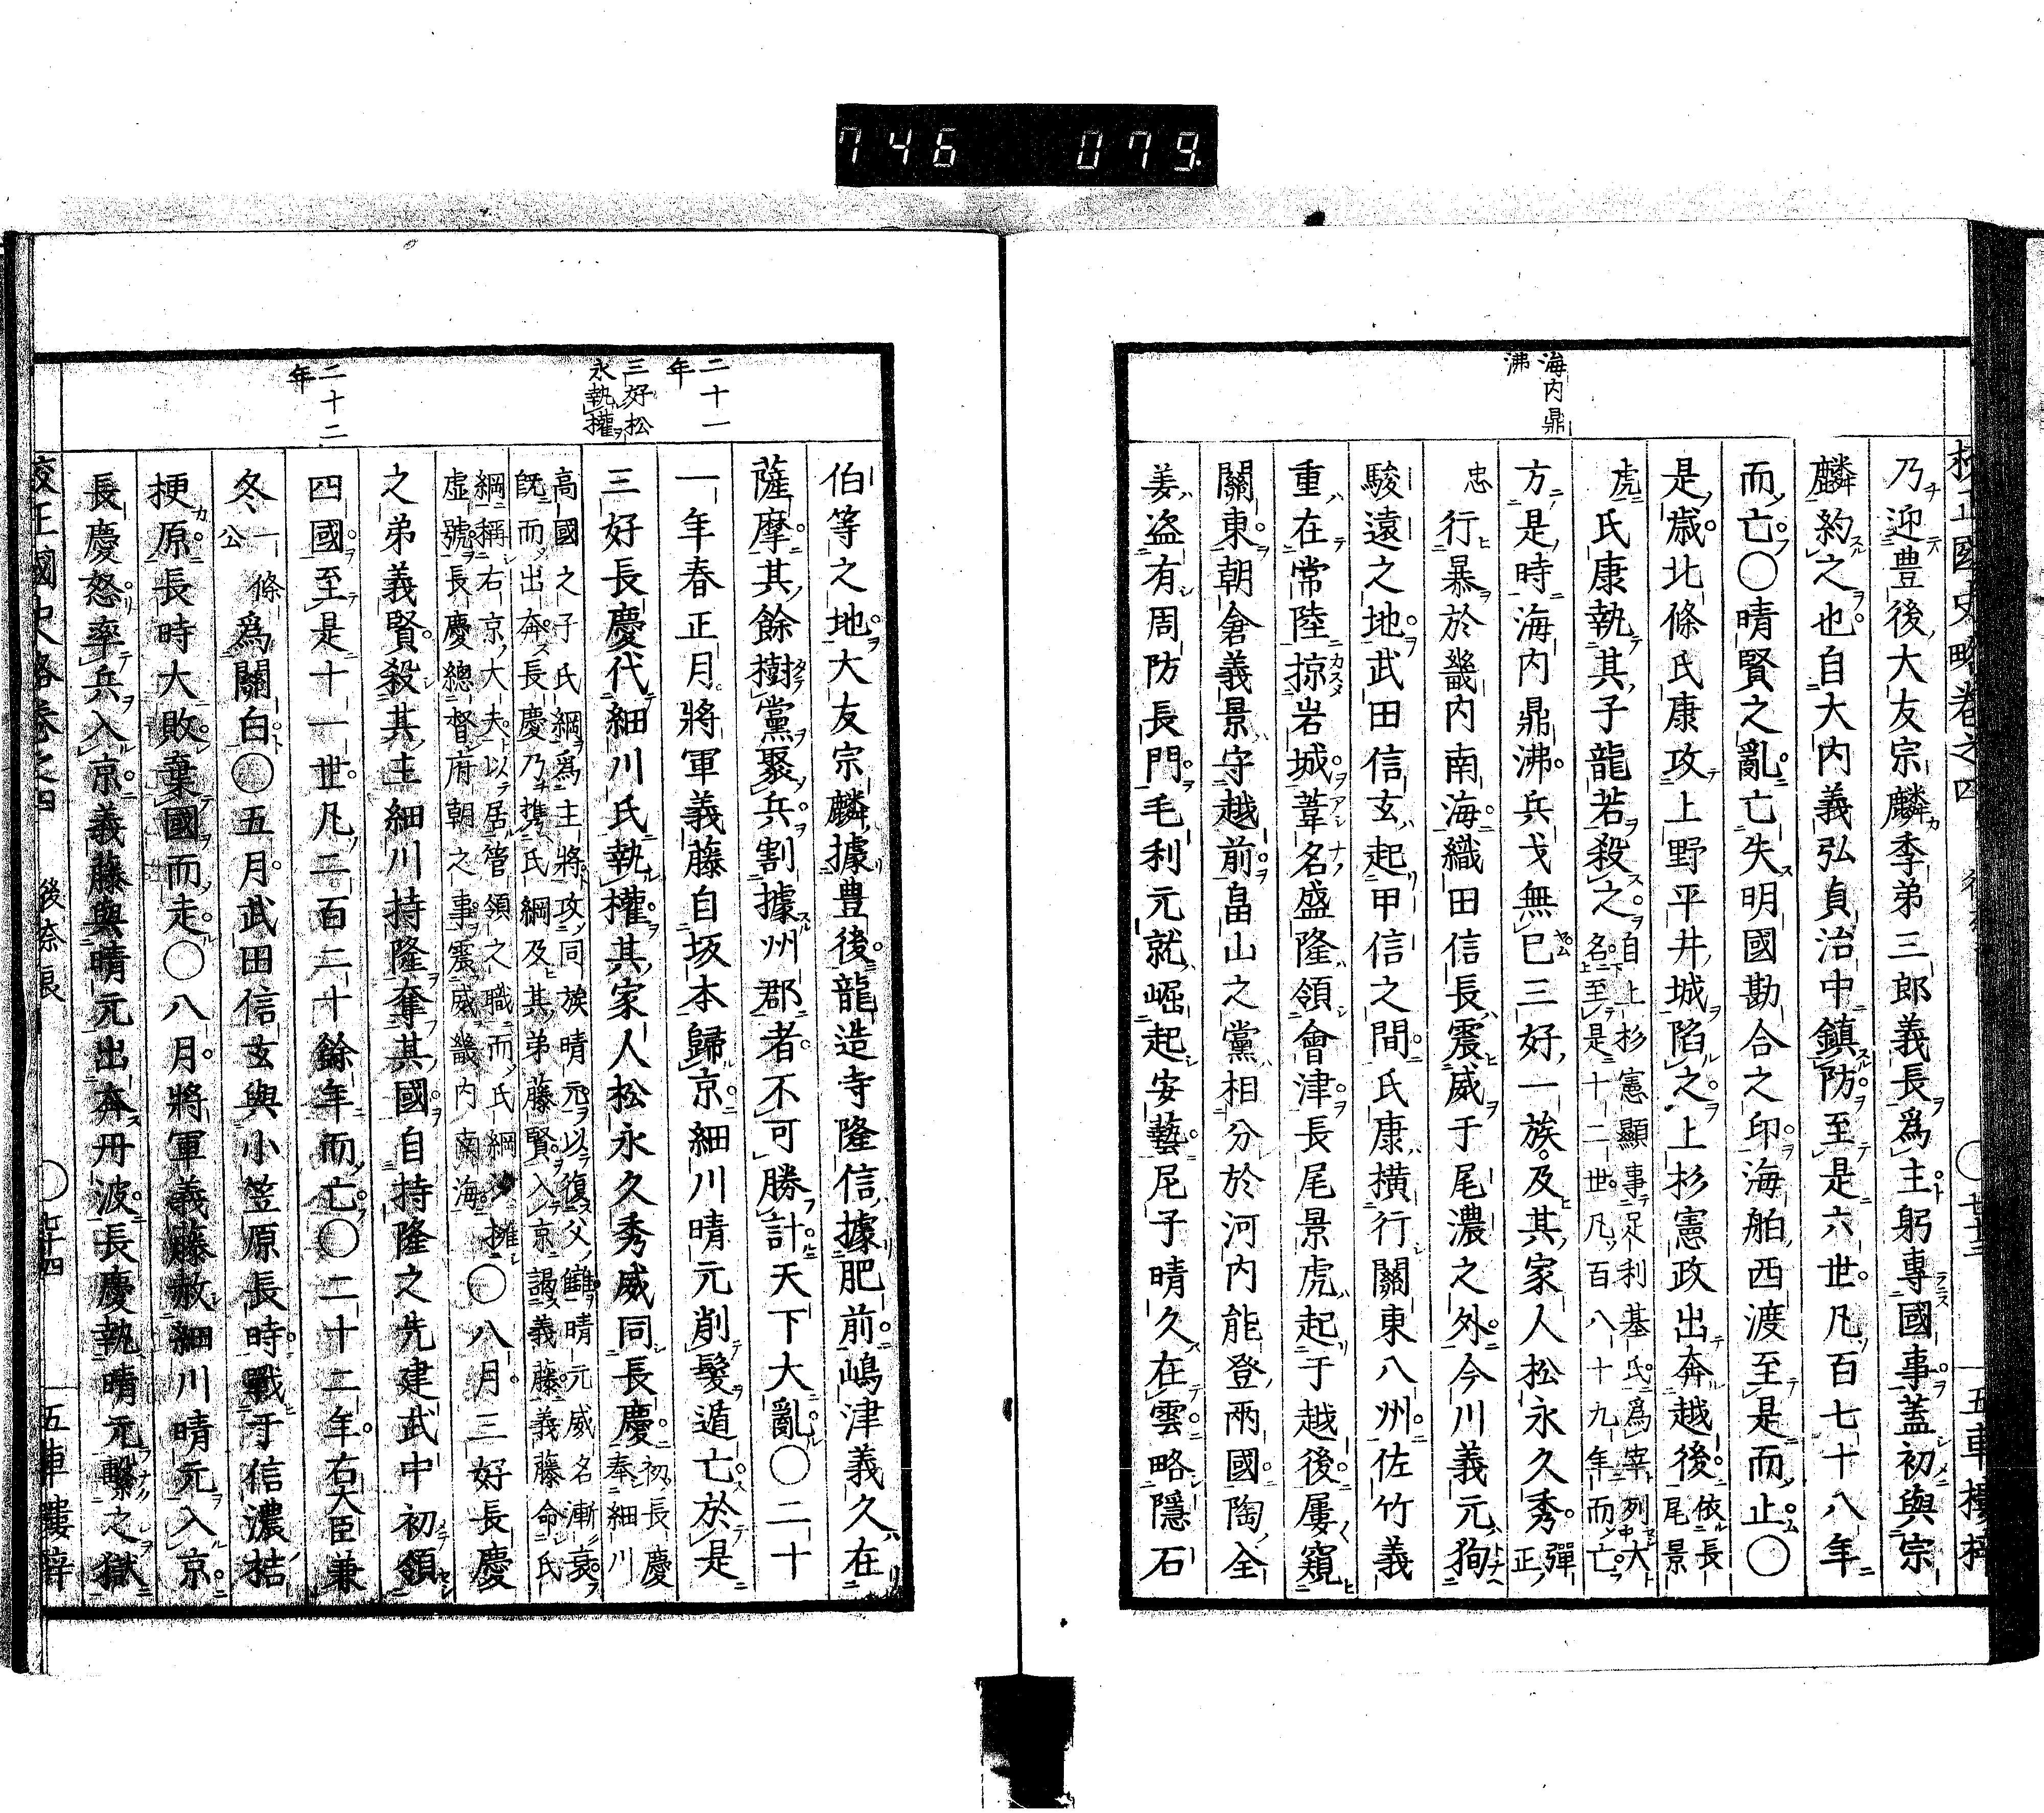 746 079
校正國史略卷之四
五車樓梓
海内鼎
沸
乃迎豊後大友宗麟季弟三郎義長爲主躬專國事蓋初與宗
麟約之也自大内義弘貞治中鎮防至是六世凡百七十八年
而亡〇晴賢之亂亡失明國勘合之印海舶西渡至是而止〇
是歳北條氏康攻上野平井城陷之上杉憲政出奔越後依長尾景
虎氏康執其子龍若殺之自上杉憲顯事足利基氏爲宰列大名至是十二世凡百八十九年而亡
方是時海内鼎沸兵戈無已三好一族及其家人松永久秀彈正
忠行暴於畿内南海織田信長震威于尾濃之外今川義元狥
駿遠之地武田信玄起甲信之間氏康横行關東八州佐竹義
重在常陸掠岩城葦名盛隆領會津長尾景虎起于越後屢窺
關東朝倉義景守越前畠山之黨相分於河内能登兩國陶全
姜盗有周防長門毛利元就崛起安藝尼子晴久在雲略隱石
二十一
年
三好松
永執權
二十二
年
伯等之地大友宗麟據豊後龍造寺隆信據肥前嶋津義久在
薩摩其餘樹黨聚兵割據州郡者不可勝計天下大亂〇二十
一年春正月將軍義藤自坂本歸京細川晴元削髮遁亡於是
三好長慶代細川氏執權其家人松永久秀威同長慶初長慶奉細川
高國之子氏綱爲主將攻同族晴元以復父讎晴元威名漸衰
既而出奔長慶乃携氏綱及其弟藤賢入京謁義藤義藤命氏
綱稱右京大夫以居管領之職而氏綱擁
虚號長慶總督府朝之事震威畿内南海〇八月三好長慶
之弟義賢殺其主細川持隆奪其國自持隆之先建武中初領
四國至是十一世凡二百二十餘年而亡〇二十二年右大臣兼
冬一條公爲關白〇五月武田信玄與小笠原長時戰于信濃桔
梗原長時大敗棄國而走〇八月將軍義藤赦細川晴元入京
長慶怒率兵入京義藤與晴元出奔丹波長慶執晴元繫之獄
校正國史略卷之四
後奈良
〇七十四
五車樓梓